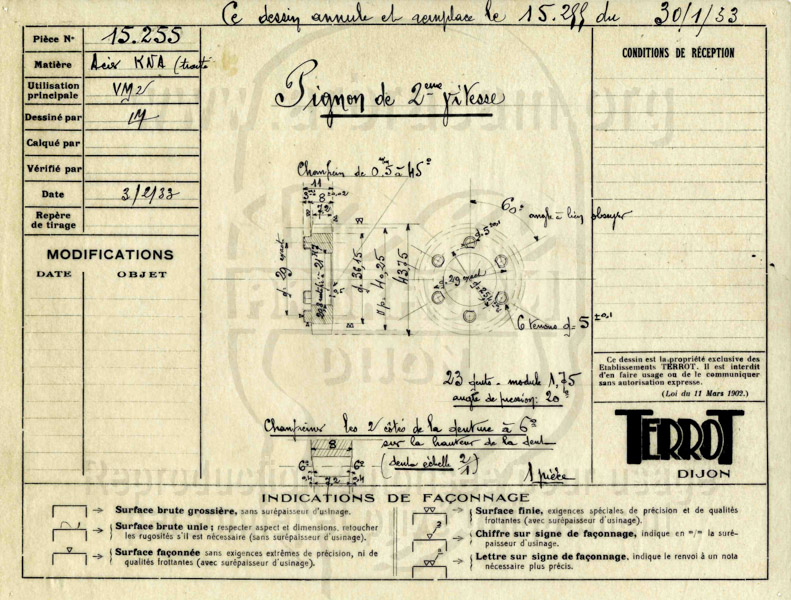 Ce dessin annule et remplace le 15.255 du 30/1/33
Pièce N° 15.255
Matière Acier KNA (traité
Utilisation principale VM2
Dessiné par
Calqué par
Vérifié par
Date 3/2/33
Repère de tirage
MODIFICATIONS
DATE OBJET
Pignon de 2eme vitesse
CONDITIONS DE RÉCEPTION
Chanfrein de 0.5 à 45°
11
8
60°
angle à bien observer
d. 29
d. 36,15
d.p. 40,25
43,75
6 tenons d= 5 ±0,1
23 dents - module 1,75
angle de pression: 20°
Chanfreiner les 2 côtés de la denture à 6°
sur la hauteur de la dent
(dents échelle 2/1)
8
6° 6°
7,2
1 pièce
Ce dessin est la propriété exclusive des
Etablissements TERROT. Il est interdit
d'en faire usage ou de le communiquer
sans autorisation expresse.
(Loi du 11 Mars 1902.)
TERROT
DIJON
INDICATIONS DE FAÇONNAGE
Surface brute grossière, sans surépaisseur d'usinage.
Surface brute unie; respecter aspect et dimensions, retoucher
les rugosités s'il est nécessaire (sans surépaisseur d'usinage).
Surface façonnée sans exigences extrêmes de précision, ni de
qualités frottantes (avec surépaisseur d'usinage).
Surface finie, exigences spéciales de précision et de qualités
frottantes (avec surépaisseur d'usinage).
Chiffre sur signe de façonnage, indique en m/m la suré-
paisseur d'usinage.
Lettre sur signe de façonnage, indique le renvoi à un nota
nécessaire plus précis.